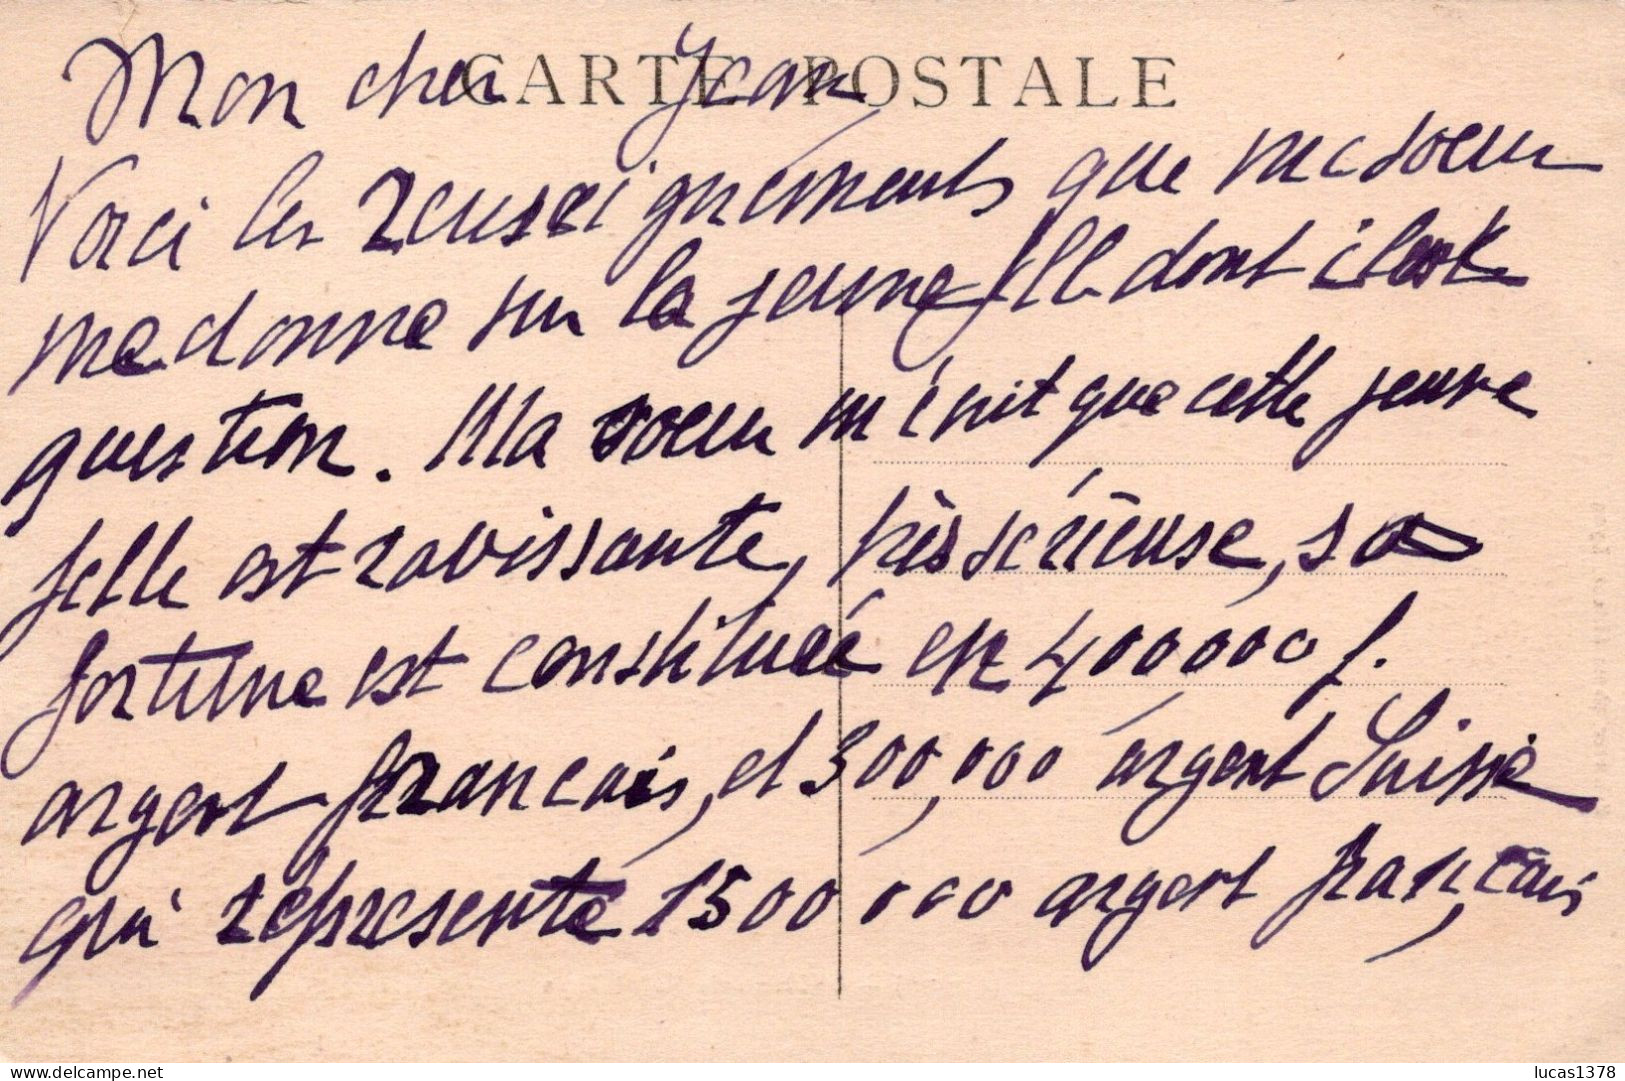 CARTE POSTALE
Mon cher Jean,
Voici les renseignements que ma soeur
me donne sur la jeune fille dont il est
question. Ma soeur m'écrit que cette jeune
fille est ravissante, très sérieuse, sa
fortune est constituée en 400,000 f.
argent français, et 300,000 argent Suisse
qui représente 1500 000 argent français
delcampe.net
lucas1378